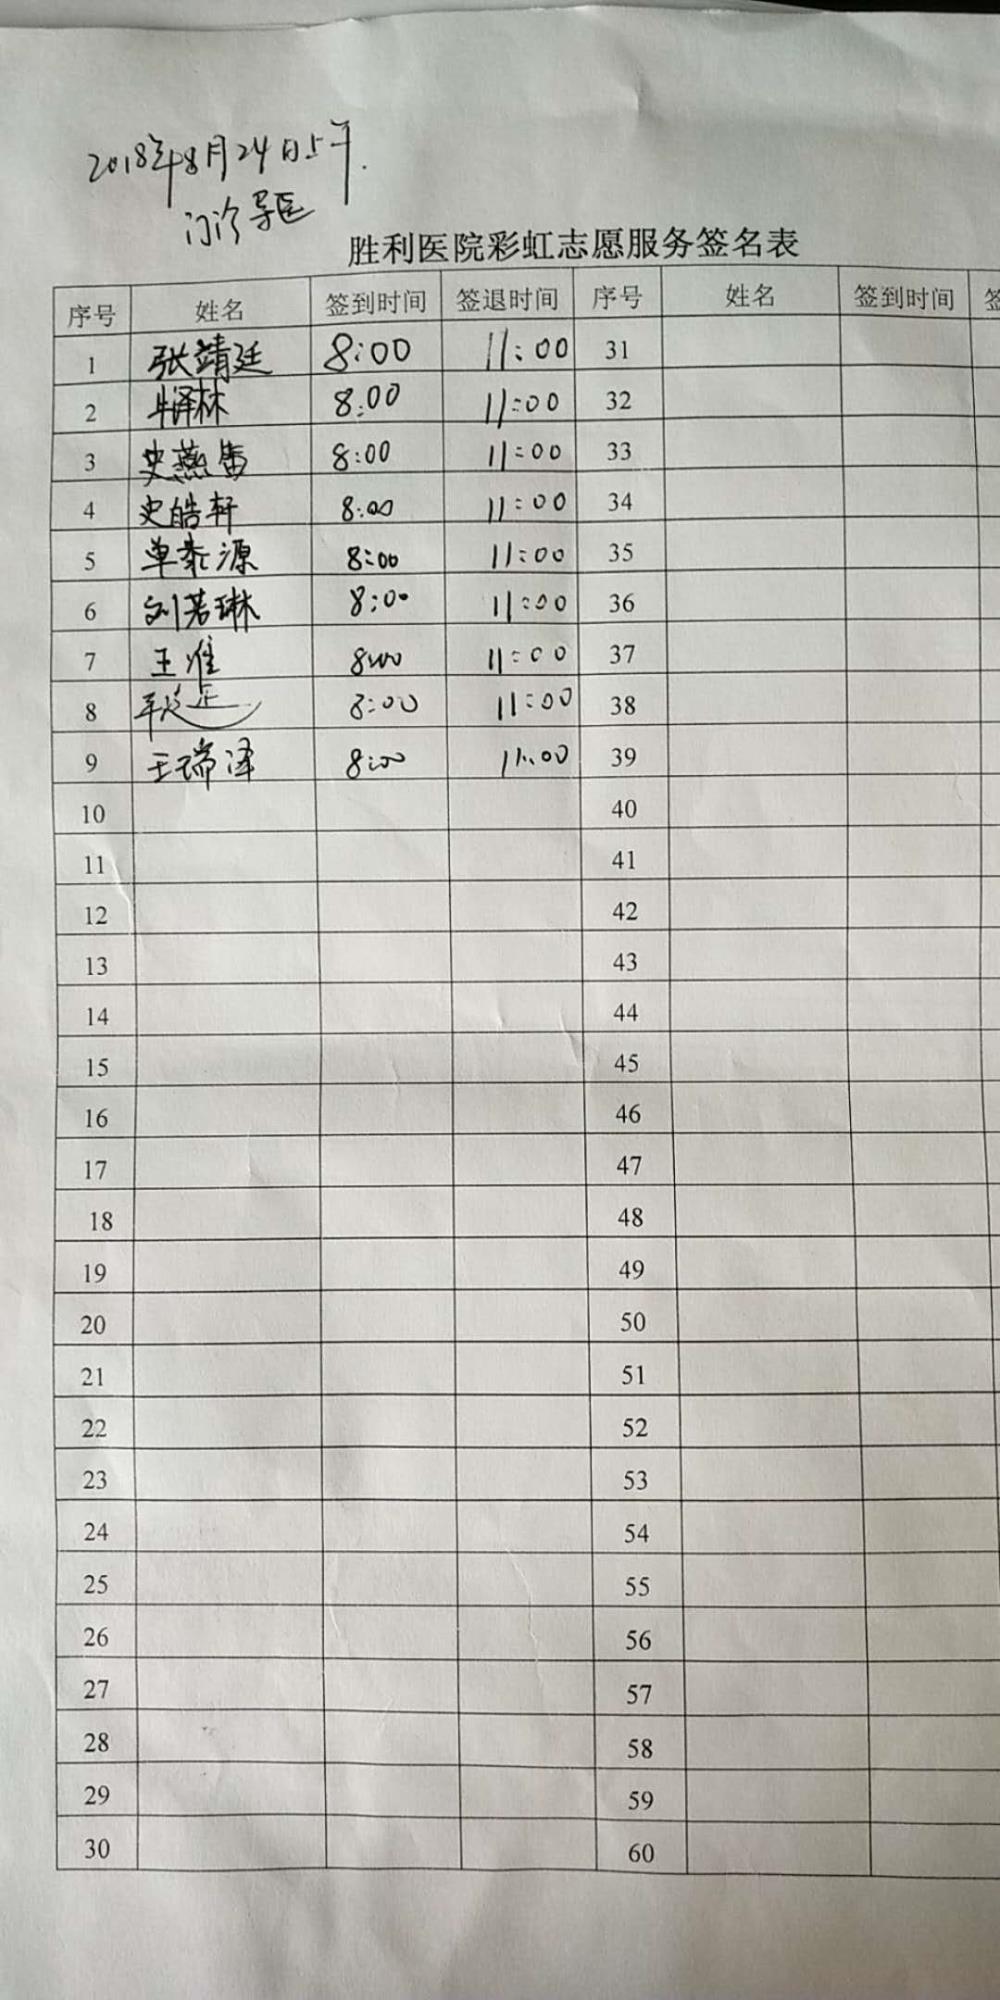 2018年8月24日上午.
门诊导医
胜利医院彩虹志愿服务签名表
序号 姓名 签到时间 签退时间 序号 姓名 签到时间 签
1 张靖廷 8:00 11:00 31
2 牛泽林 8:00 11:00 32
3 史燕 8:00 11:00 33
4 史皓轩 8:00 11:00 34
5 单泰源 8:00 11:00 35
6 刘若琳 8:00 11:00 36
7 王准 8:00 11:00 37
8 8:00 11:00 38
9 王瑞泽 8:00 11:00 39
10 40
11 41
12 42
13 43
14 44
15 45
16 46
17 47
18 48
19 49
20 50
21 51
22 52
23 53
24 54
25 55
26 56
27 57
28 58
29 59
30 60